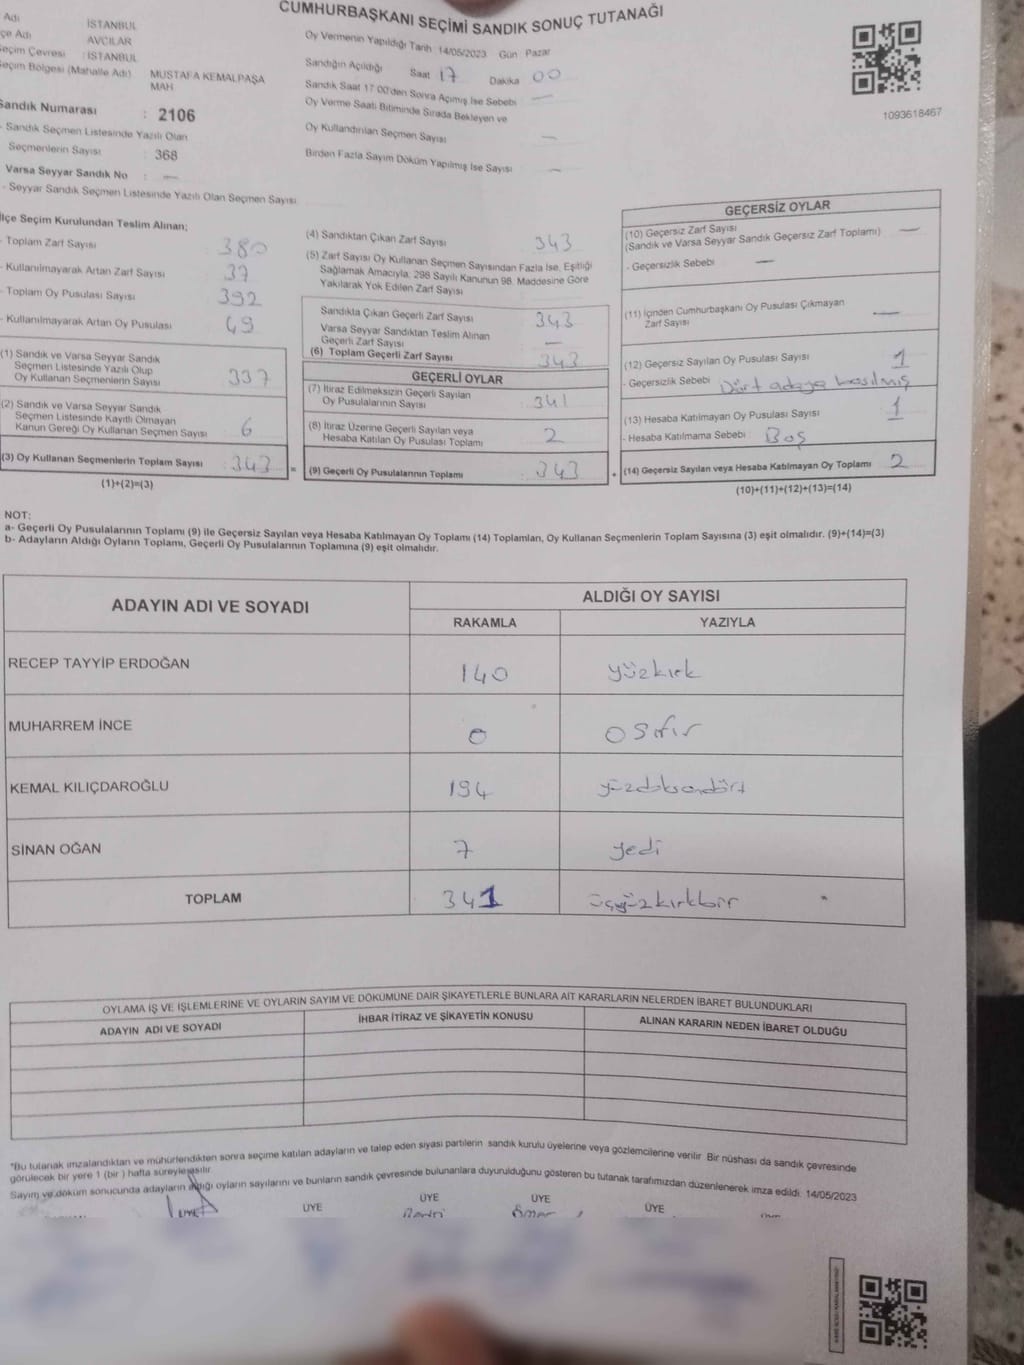 CUMHURBAŞKANI SEÇİMİ SANDIK SONUÇ TUTANAĞI
Adı İSTANBUL
çe Adı AVCILAR
eçim Çevresi : İSTANBUL
eçim Bölgesi (Mahalle Adı) MUSTAFA KEMALPAŞA
MAH
Sandık Numarası : 2106
- Sandık Seçmen Listesinde Yazılı Olan
Seçmenlerin Sayısı : 368
Varsa Seyyar Sandık No : —
- Seyyar Sandık Seçmen Listesinde Yazılı Olan Seçmen Sayısı
Oy Vermenin Yapıldığı Tarih : 14/05/2023 Gün : Pazar
Sandığın Açıldığı Saat 17 Dakika 00
Sandık Saat 17:00'den Sonra Açılmış İse Sebebi —
Oy Verme Saati Bitiminde Sırada Bekleyen ve
Oy Kullandırılan Seçmen Sayısı —
Birden Fazla Sayım Döküm Yapılmış İse Sayısı —
1093618467
İlçe Seçim Kurulundan Teslim Alınan;
- Toplam Zarf Sayısı 380
- Kullanılmayarak Artan Zarf Sayısı 37
- Toplam Oy Pusulası Sayısı 392
- Kullanılmayarak Artan Oy Pusulası 49
(1) Sandık ve Varsa Seyyar Sandık
Seçmen Listesinde Yazılı Olup
Oy Kullanan Seçmenlerin Sayısı 337
(2) Sandık ve Varsa Seyyar Sandık
Seçmen Listesinde Kayıtlı Olmayan
Kanun Gereği Oy Kullanan Seçmen Sayısı 6
(3) Oy Kullanan Seçmenlerin Toplam Sayısı : 343 =
(1)+(2)=(3)
(4) Sandıktan Çıkan Zarf Sayısı 343
(5) Zarf Sayısı Oy Kullanan Seçmen Sayısından Fazla İse, Eşitliği
Sağlamak Amacıyla, 298 Sayılı Kanunun 98. Maddesine Göre
Yakılarak Yok Edilen Zarf Sayısı
Sandıkta Çıkan Geçerli Zarf Sayısı 343
Varsa Seyyar Sandıktan Teslim Alınan
Geçerli Zarf Sayısı —
(6) Toplam Geçerli Zarf Sayısı 343
GEÇERLİ OYLAR
(7) İtiraz Edilmeksizin Geçerli Sayılan
Oy Pusulalarının Sayısı 341
(8) İtiraz Üzerine Geçerli Sayılan veya
Hesaba Katılan Oy Pusulası Toplamı 2
(9) Geçerli Oy Pusulalarının Toplamı 343 +
GEÇERSİZ OYLAR
(10) Geçersiz Zarf Sayısı
(Sandık ve Varsa Seyyar Sandık Geçersiz Zarf Toplamı) —
- Geçersizlik Sebebi —
(11) İçinden Cumhurbaşkanı Oy Pusulası Çıkmayan
Zarf Sayısı —
(12) Geçersiz Sayılan Oy Pusulası Sayısı 1
- Geçersizlik Sebebi Dört adaya basılmış
(13) Hesaba Katılmayan Oy Pusulası Sayısı 1
- Hesaba Katılmama Sebebi : Boş
(14) Geçersiz Sayılan veya Hesaba Katılmayan Oy Toplamı 2
(10)+(11)+(12)+(13)=(14)
NOT:
a- Geçerli Oy Pusulalarının Toplamı (9) ile Geçersiz Sayılan veya Hesaba Katılmayan Oy Toplamı (14) Toplamları, Oy Kullanan Seçmenlerin Toplam Sayısına (3) eşit olmalıdır. (9)+(14)=(3)
b- Adayların Aldığı Oyların Toplamı, Geçerli Oy Pusulalarının Toplamına (9) eşit olmalıdır.
ADAYIN ADI VE SOYADI ALDIĞI OY SAYISI
RAKAMLA YAZIYLA
RECEP TAYYİP ERDOĞAN 140 yüzkırk
MUHARREM İNCE 0 0 sıfır
KEMAL KILIÇDAROĞLU 194 yüzdoksandört
SİNAN OĞAN 7 yedi
TOPLAM 341 üçyüzkırkbir
OYLAMA İŞ VE İŞLEMLERİNE VE OYLARIN SAYIM VE DÖKÜMÜNE DAİR ŞİKAYETLERLE BUNLARA AİT KARARLARIN NELERDEN İBARET BULUNDUKLARI
ADAYIN ADI VE SOYADI İHBAR İTİRAZ VE ŞİKAYETİN KONUSU ALINAN KARARIN NEDEN İBARET OLDUĞU
*Bu tutanak imzalandıktan ve mühürlendikten sonra seçime katılan adayların ve talep eden siyasi partilerin sandık kurulu üyelerine veya gözlemcilerine verilir. Bir nüshası da sandık çevresinde
görülecek bir yere 1 (bir) hafta süreyle asılır.
Sayım ve döküm sonucunda adayların aldığı oyların sayılarını ve bunların sandık çevresinde bulunanlara duyurulduğunu gösteren bu tutanak tarafımızdan düzenlenerek imza edildi. 14/05/2023
ÜYE ÜYE ÜYE ÜYE ÜYE